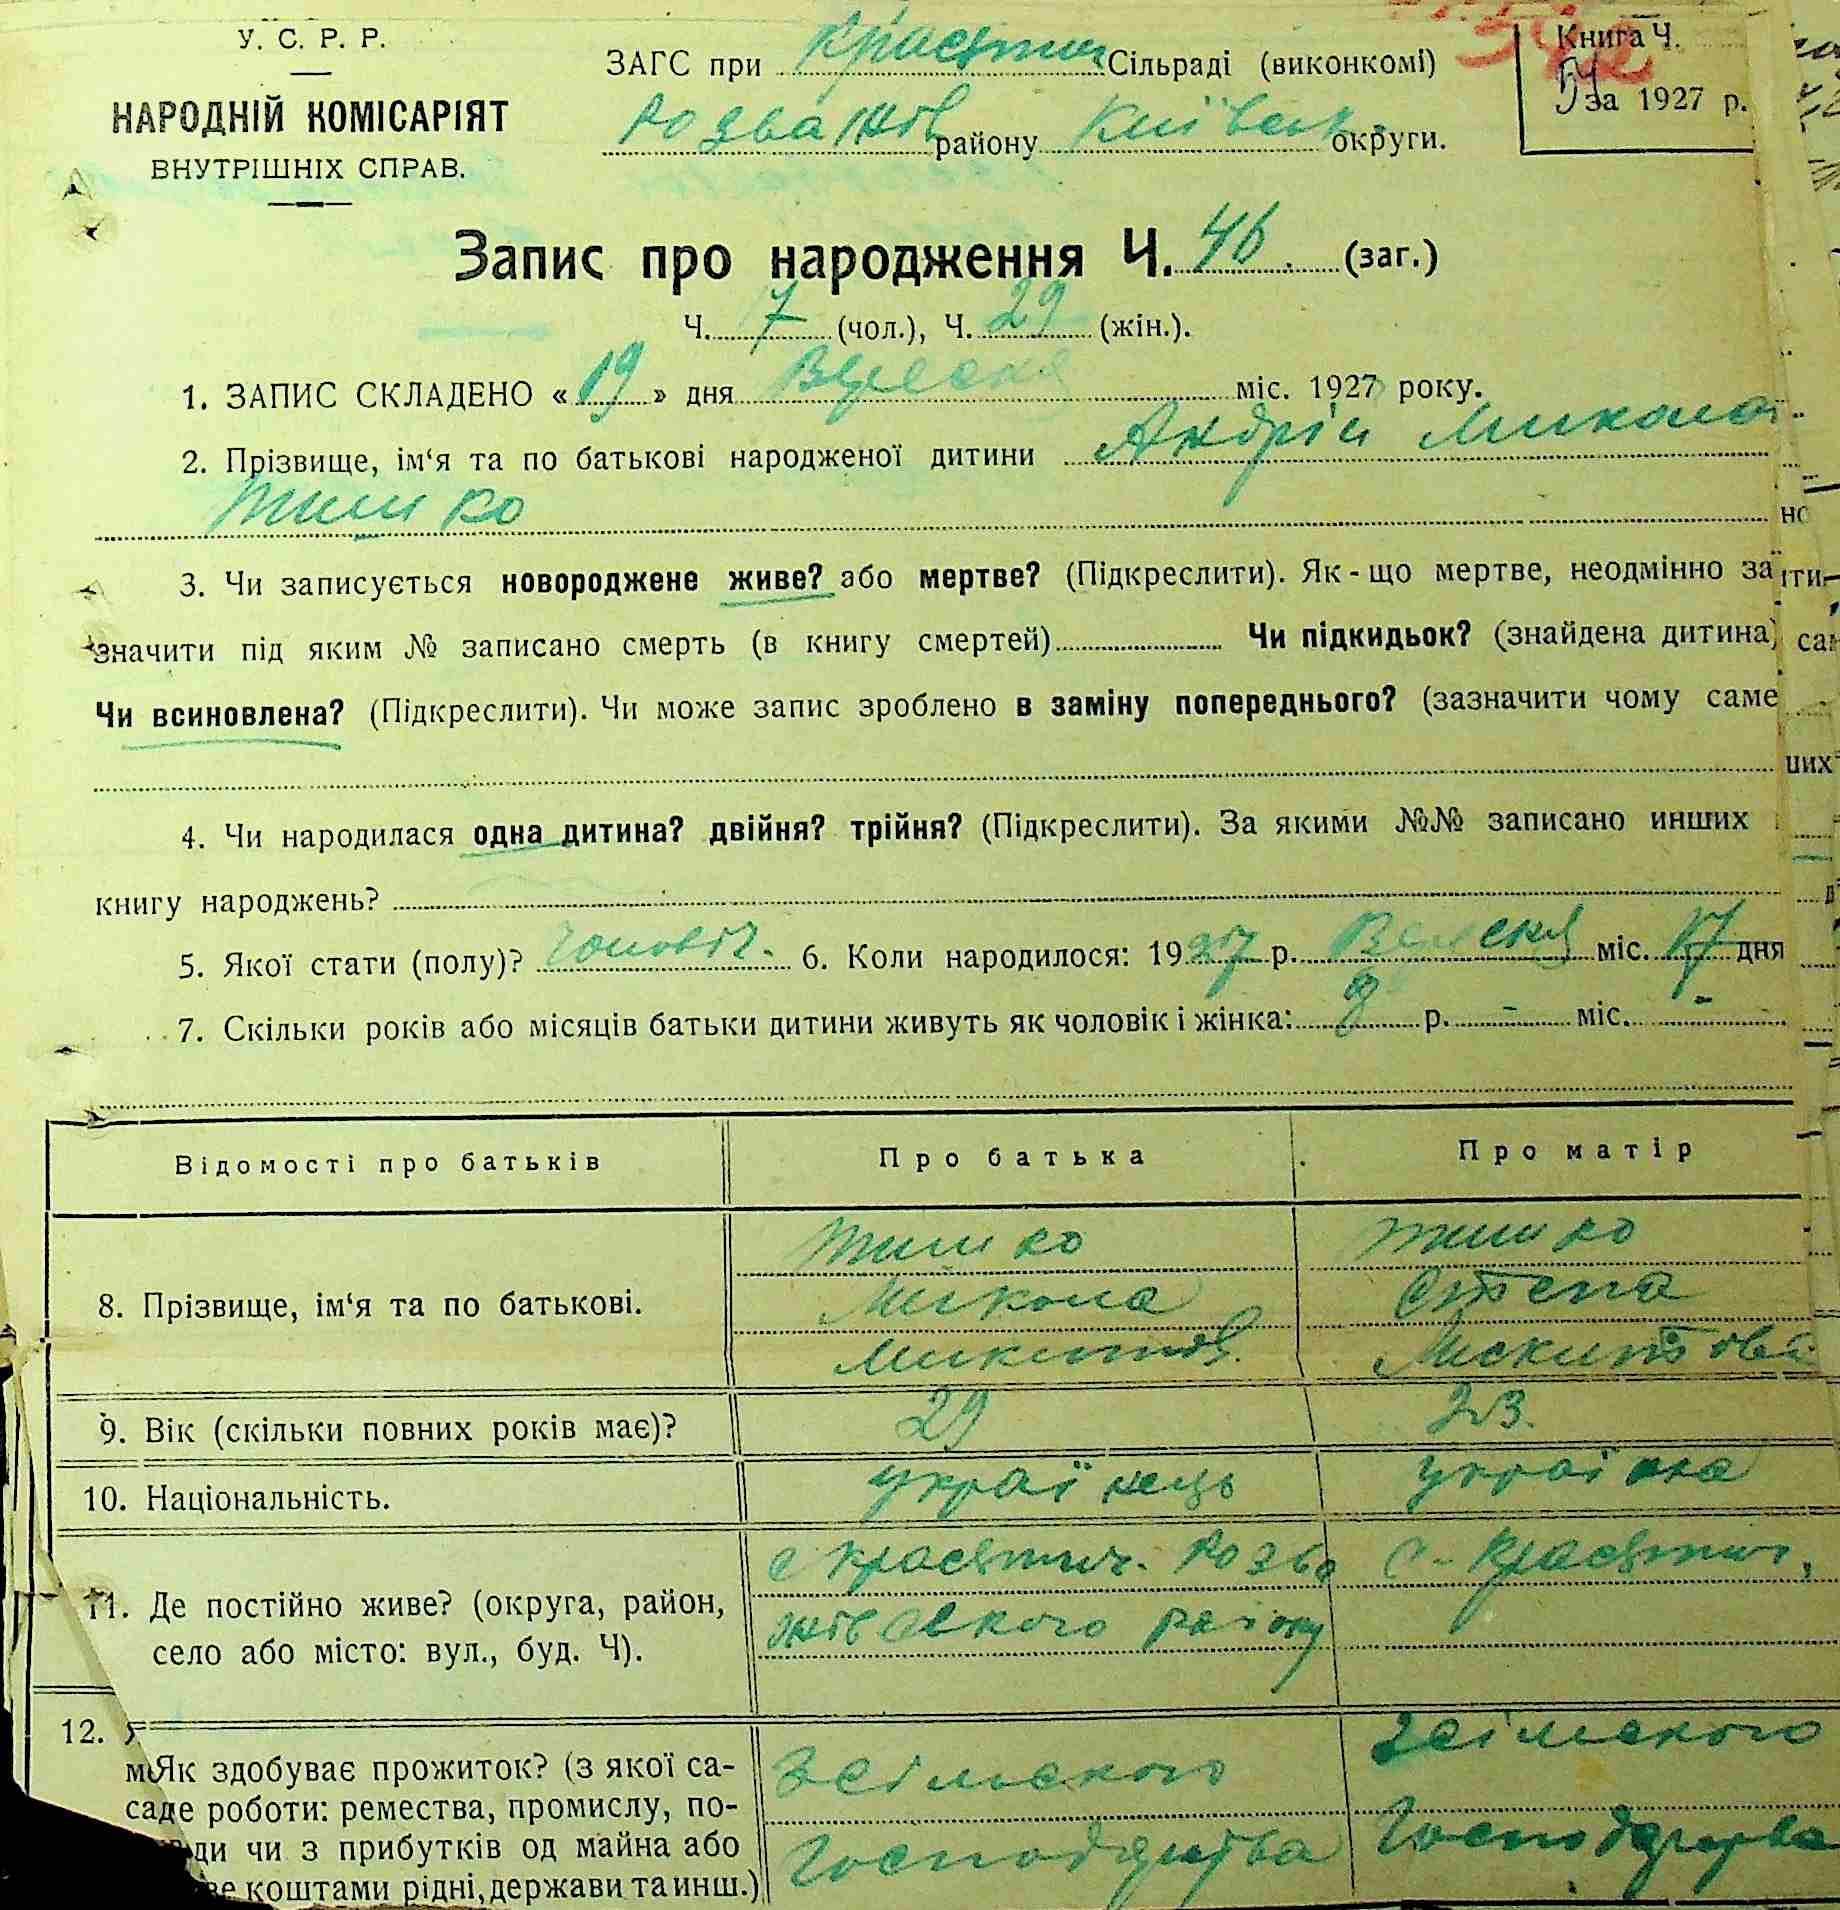 У. С. Р. Р.
НАРОДНІЙ КОМІСАРІЯТ
ВНУТРІШНІХ СПРАВ.
ЗАГС при Красятич Сільраді (виконкомі)
Розважів району Київськ. округи.
Книга Ч.
за 1927 р.
Запис про народження Ч. 46. (заг.)
Ч. 17 (чол.), Ч. 29 (жін.).
1. ЗАПИС СКЛАДЕНО « 19 » дня Вересня міс. 1927 року.
2. Прізвище, ім‘я та по батькові народженої дитини Андрій Микола
Тишко
3. Чи записується новороджене живе? або мертве? (Підкреслити). Як-що мертве, неодмінно за
значити під яким № записано смерть (в книгу смертей) Чи підкидьок? (знайдена дитина)
Чи всиновлена? (Підкреслити). Чи може запис зроблено в заміну попереднього? (зазначити чому саме
4. Чи народилася одна дитина? двійня? трійня? (Підкреслити). За якими №№ записано инших
книгу народжень?
5. Якої стати (полу)? чоловіч. 6. Коли народилося: 1927 р. Вересня міс. 17 дня
7. Скільки років або місяців батьки дитини живуть як чоловік і жінка: 8 р. - міс. -
Відомості про батьків Про батька Про матір
8. Прізвище, ім‘я та по батькові.
Тишко Тишко
Микола Степа
Микитов.
9. Вік (скільки повних років має)? 29 23.
10. Національність. українець українка
11. Де постійно живе? (округа, район,
село або місто: вул., буд. Ч).
с Красятич. Розва с. Красятич,
жівського району
12.
Як здобуває прожиток? (з якої са-
саде роботи: ремества, промислу, по-
ди чи з прибутків од майна або
коштами рідні, держави та инш.)
З сільського З сільського
Господарства Господарства